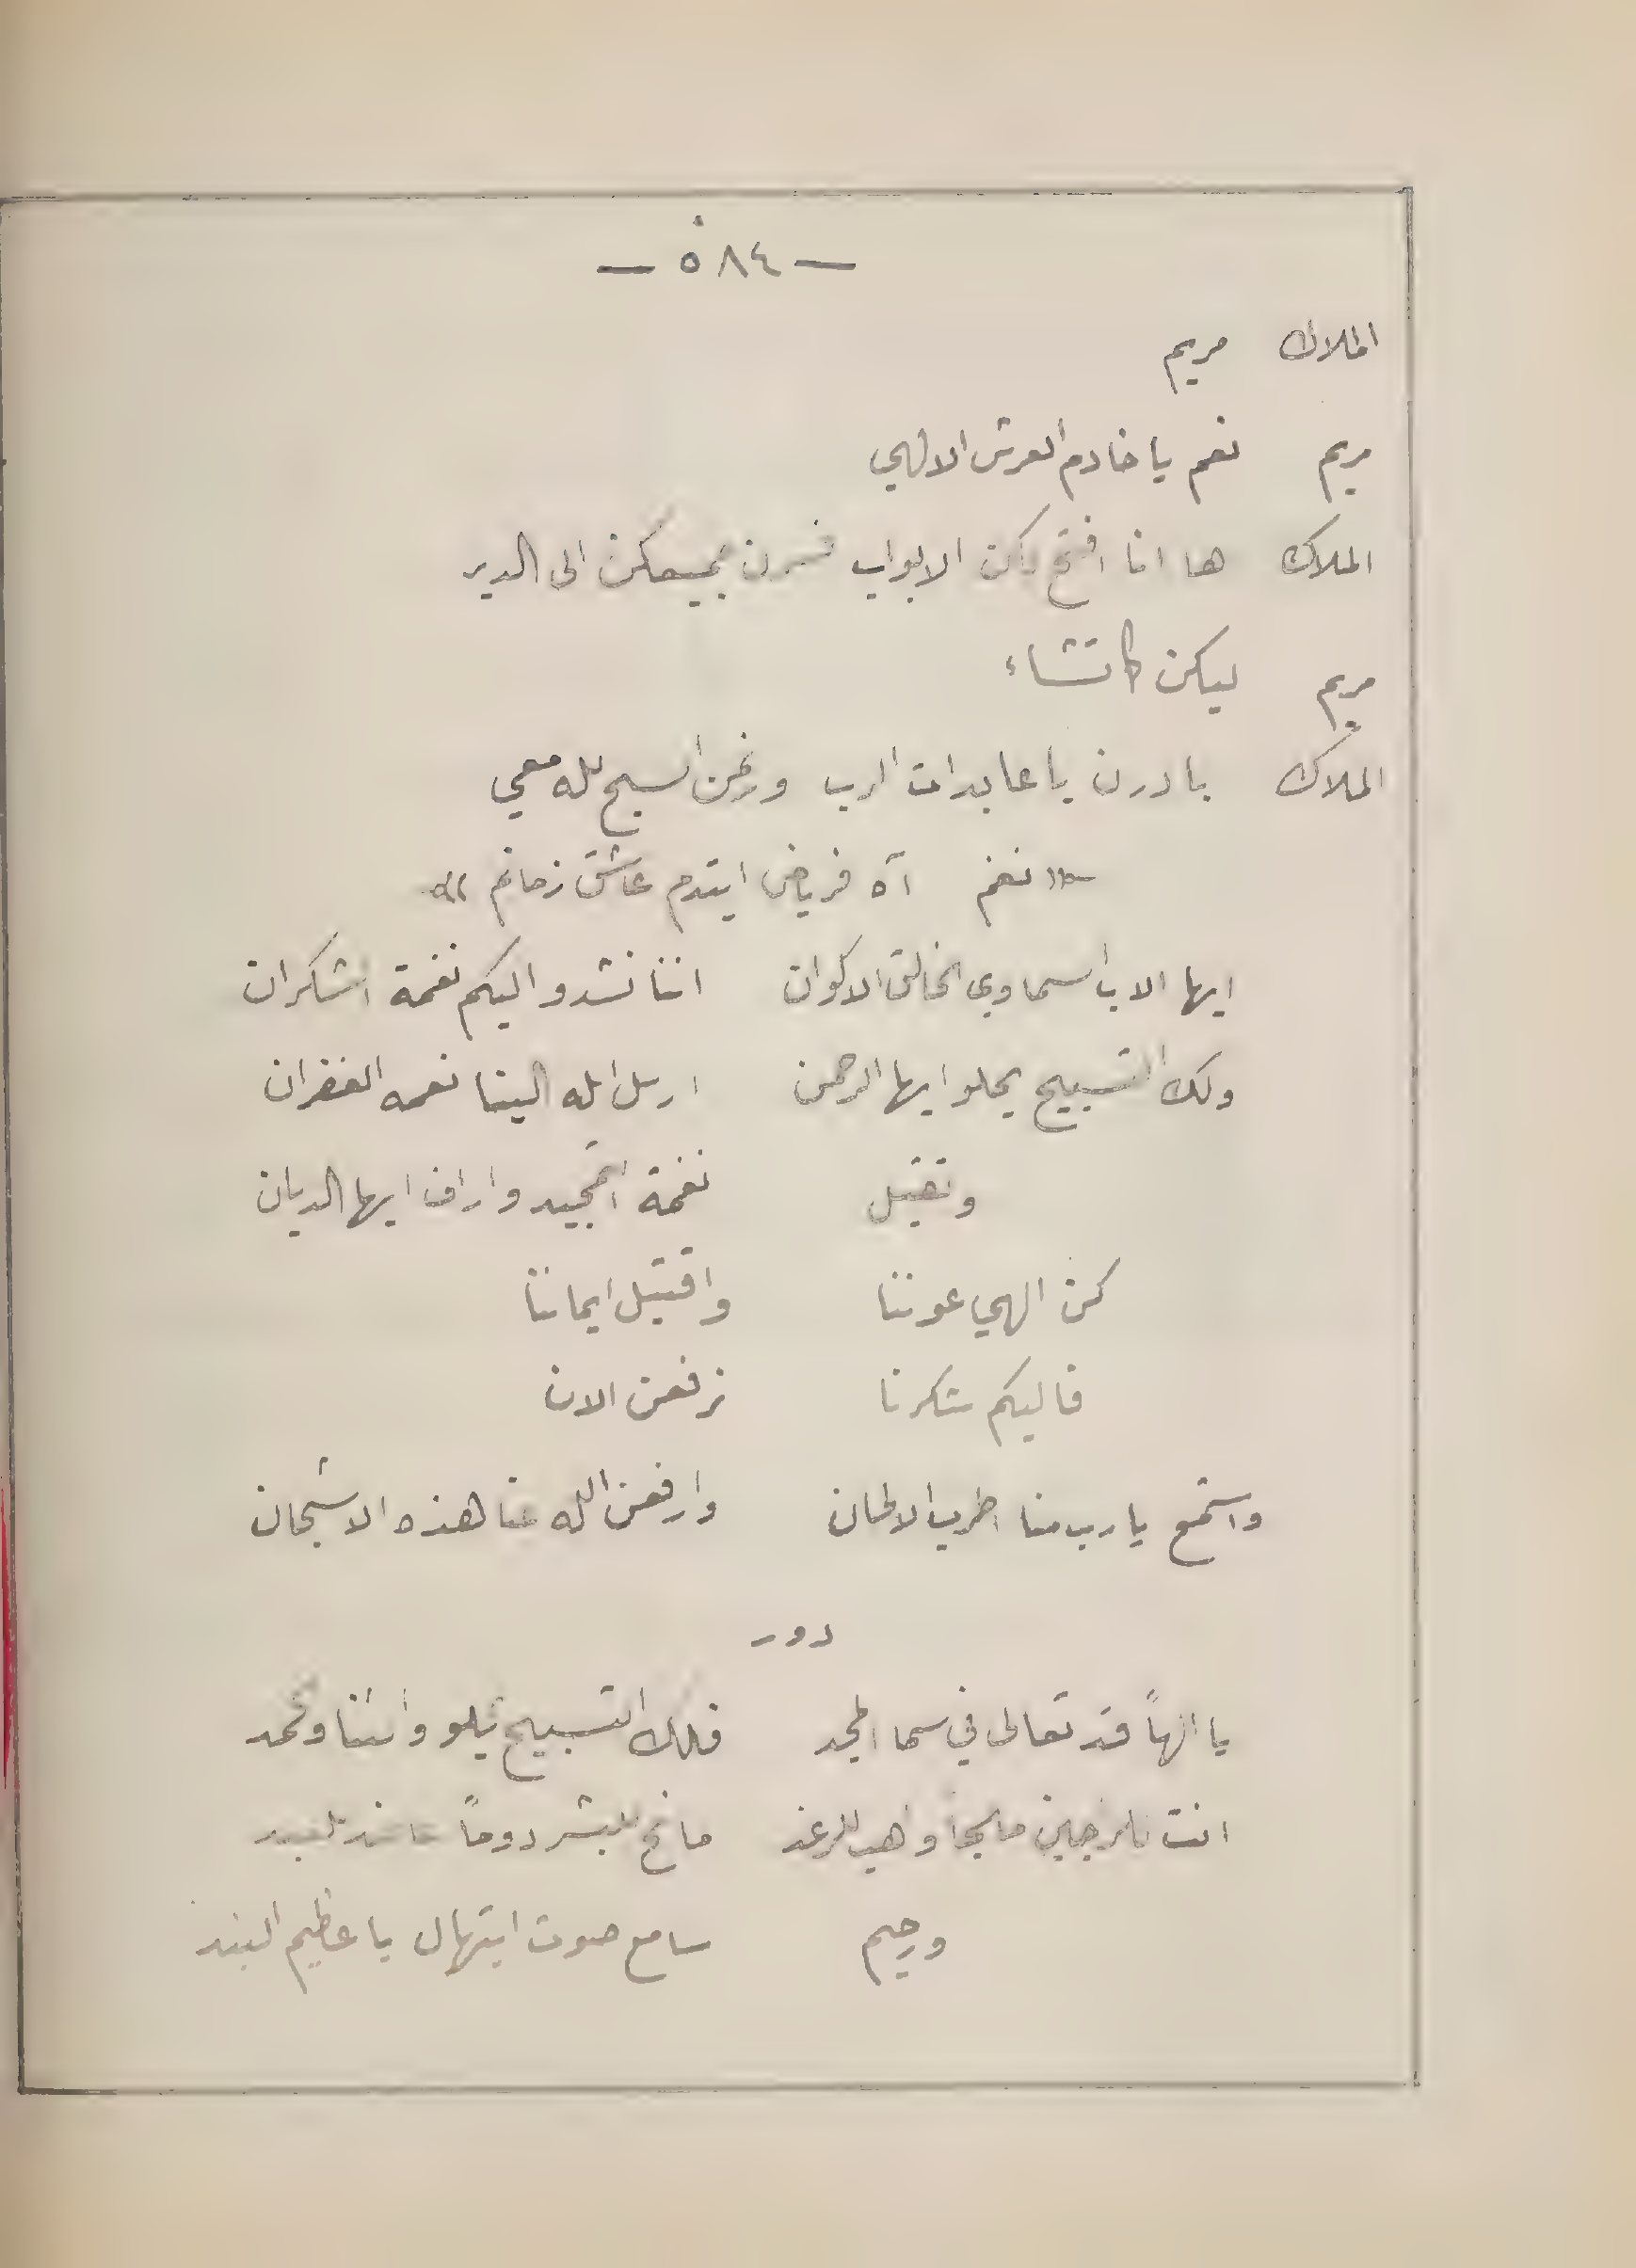 — ٥٨٤ —
الملاك مريم
مريم نعم يا خادم العرش الالهي
الملاك ها انا افتح لكن الابواب فسرن جميعكن الى الدير
مريم ليكن كما تشاء
الملاك بادرن يا عابدات الرب ورنمن التسبيح لله معي
نغم آه فرياض ايتدم عاشق زمانم
ايها الاب السماوي الخالق الاكوان اننا نشدو اليكم نغمة الشكران
ولك التسبيح يحلو ايها الرحمن ارسل الله الينا نعمه الغفران
وتقبل نغمة التمجيد واراف ايها الديان
كن الهي عوننا واقتبل ايماننا
فاليكم شكرنا نرفعن الان
واستمع يا رب منا اطرب الالحان وارفعن الله عنا هذه الاشجان
دور
يا الهاً قد تعالى في سما المجد فلك التسبيح يتلو والثنا والحمد
انت للراجين ملجأ واهب الرغد مانح للبشر دوماً
ورحيم سامع صوت ابتهال يا عظيم البند